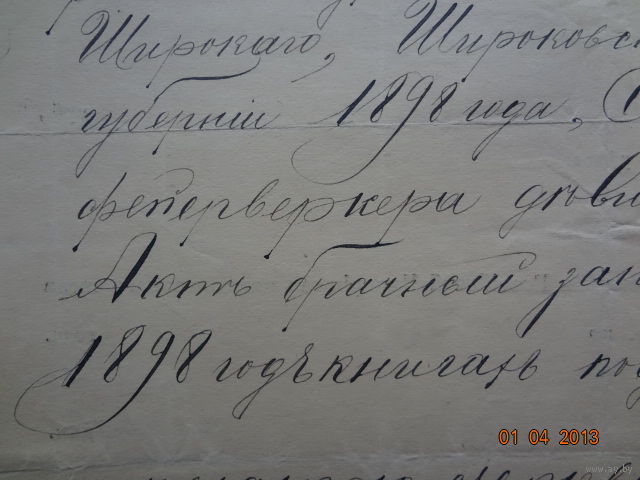 Широкаго, Широковс
губернiи 1898 года,
фейерверкера дѣви
Актъ брачный зап
1898 годъ книгахъ под
01 04 2013
www.ay.by